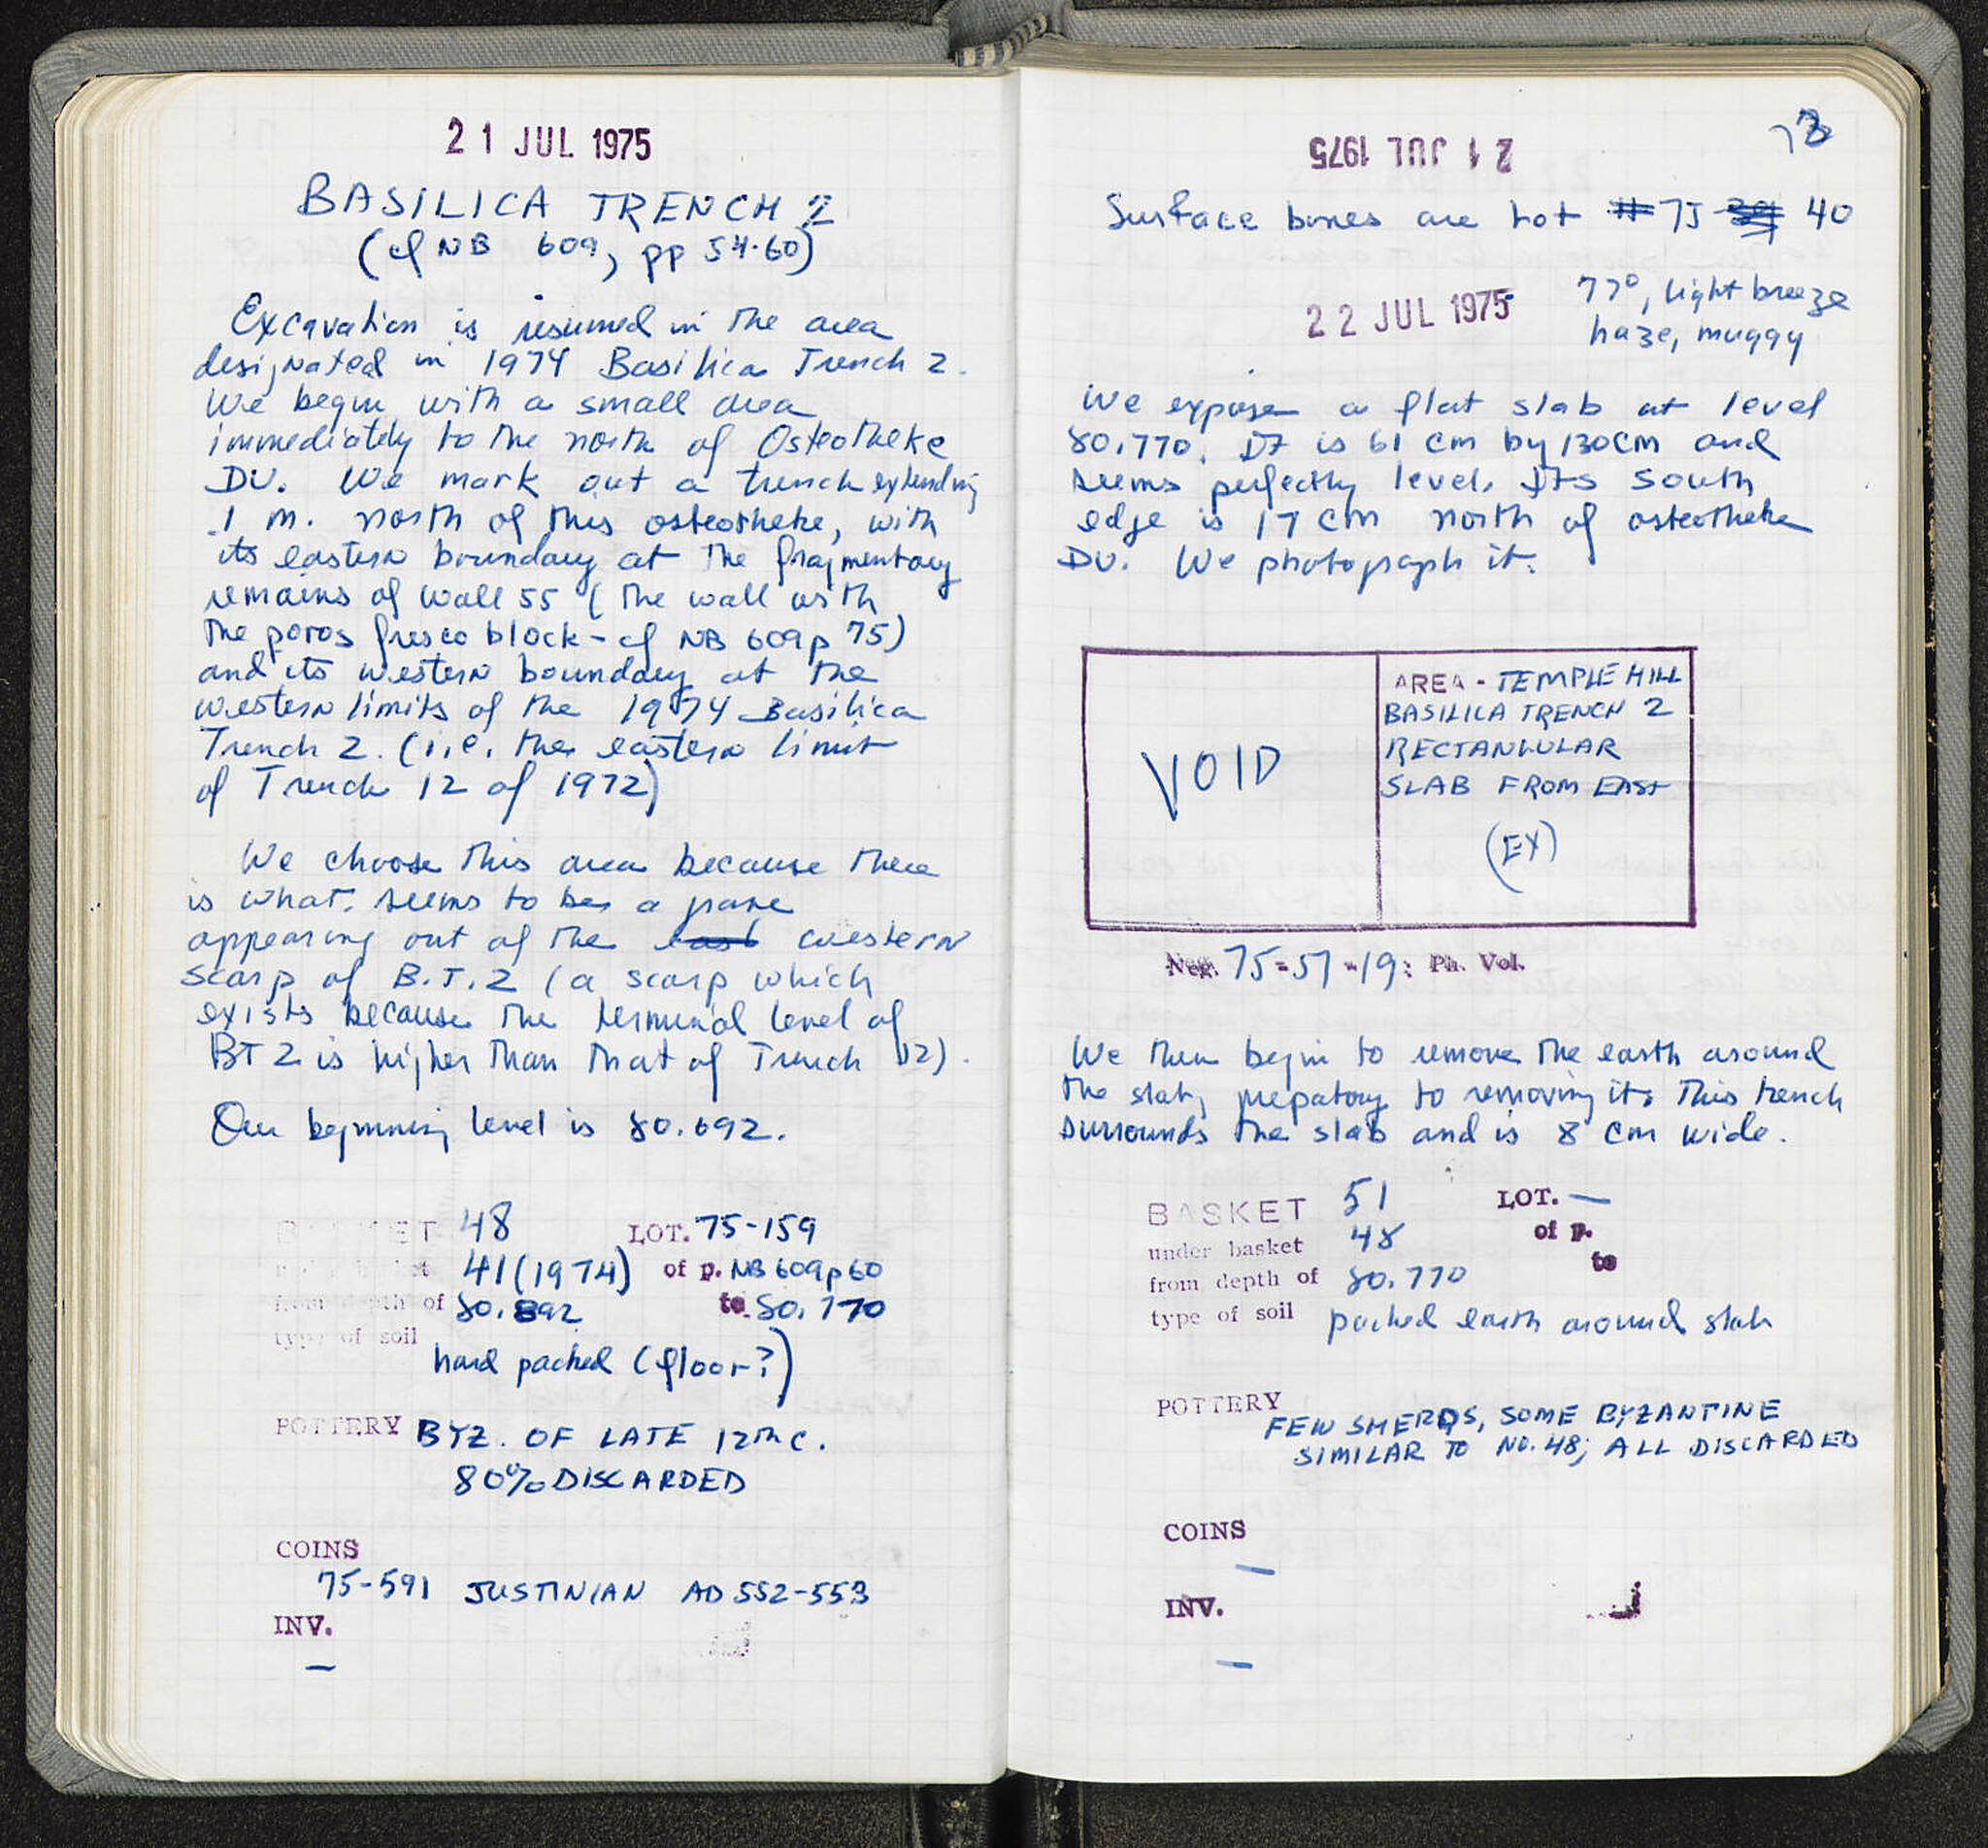 21 JUL 1975
BASILICA TRENCH 2
(cf NB 609, pp 54-60)
Excavation is resumed in the area
designated in 1974 Basilica Trench 2.
We begin with a small area
immediately to the north of Osteotheke
DU. We mark out a trench extending
1 m. north of this osteotheke, with
its eastern boundary at the fragmentary
remains of wall 55 (the wall with
the poros fresco block - cf NB 609 p 75)
and its western boundary at the
western limits of the 1974 Basilica
Trench 2. (i.e. the eastern limit
of Trench 12 of 1972)
We choose this area because there
is what seems to be a
appearing out of the east western
scarp of B.T. 2 (a scarp which
exists because the terminal level of
BT 2 is higher than that of Trench 12).
Our beginning level is 80.892.
BASKET 48 LOT. 75-159
under basket 41 (1974) of p. NB 609 p 60
from depth of 80.892 to 80.770
type of soil
hard packed (floor?)
POTTERY BYZ. OF LATE 12th C.
80% DISCARDED
COINS
75-591 JUSTINIAN AD 552-553
INV.
—
73
21 JUL 1975
Surface bones are lot # 75 40
22 JUL 1975 77°, light breeze
haze, muggy
We expose a flat slab at level
80.770. It is 61 cm by 130cm and
seems perfectly level. Its south
edge is 17 cm north of osteotheke
DU. We photograph it.
VOID
AREA - TEMPLE HILL
BASILICA TRENCH 2
RECTANGULAR
SLAB FROM EAST
(EX)
Neg. 75-57-19: Ph. Vol.
We then begin to remove the earth around
the slab, prepatory to removing it. This trench
surrounds the slab and is 8 cm wide.
BASKET 51 LOT. —
under basket 48 of p.
from depth of 80.770 to
type of soil packed earth around slab
POTTERY
FEW SHERDS, SOME BYZANTINE
SIMILAR TO NO. 48; ALL DISCARDED
COINS
—
INV.
—